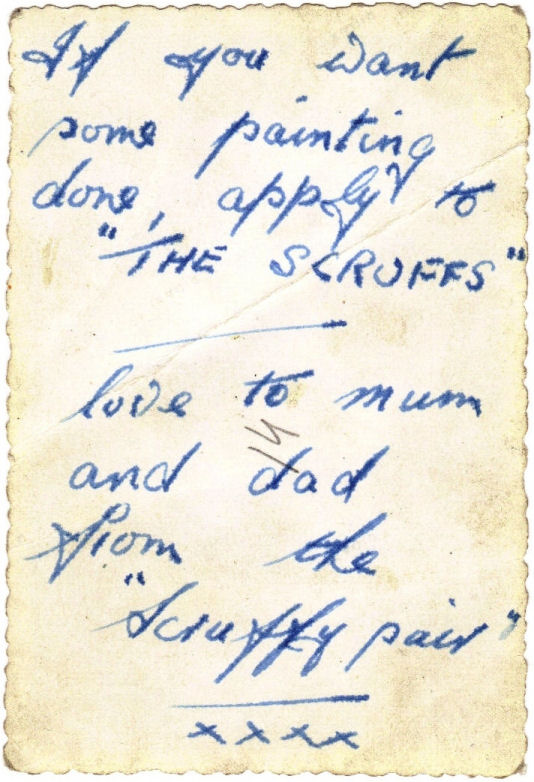 If you want
some painting
done, apply to
"THE SCRUFFS"
love to mum
14
and dad
from the
"Scruffy pair"
xxxx